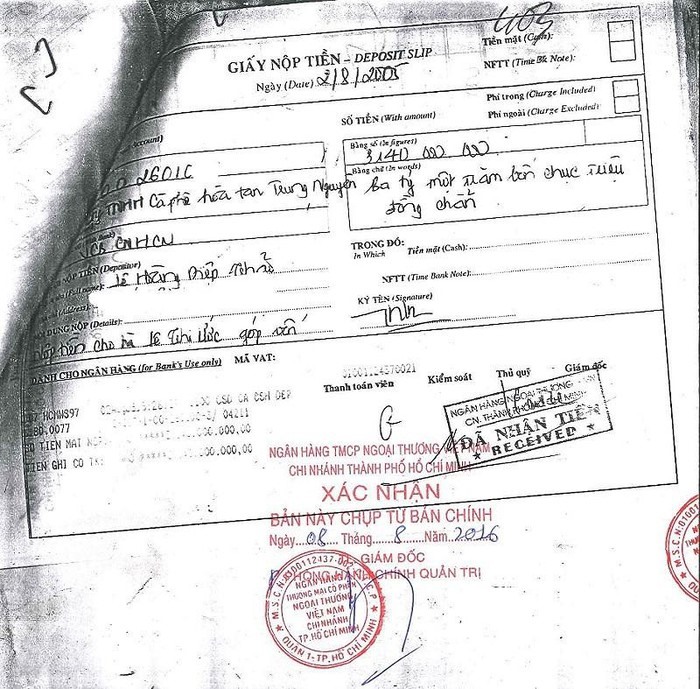 403
GIẤY NỘP TIỀN – DEPOSIT SLIP
Ngày (Date) 2/8/2005
Tiền mặt (Cash):
NFTT (Time Bk Note):
SỐ TIỀN (With amount)
Phí trong (Charge Included)
Phí ngoài (Charge Excluded):
Account)
Bằng số (In figure)
3.140.000.000
2601C
TNHH Cà phê hòa tan Trung Nguyên
Bằng chữ (In words)
ba tỷ một trăm bốn chục triệu
đồng chẵn
VCB CNHCM
NỘP TIỀN (Depositor)
Full name): Lê Hoàng Diệp Thảo
Address):
TRONG ĐÓ:
In Which
Tiền mặt (Cash):
NFTT (Time Bank Note):
KÝ TÊN (Signature)
DUNG NỘP (Details):
Nộp tiền cho bà Lê Thị Ước góp vốn
DÀNH CHO NGÂN HÀNG (for Bank's Use only)
MÃ VAT:
01001124370021
Thanh toán viên
Kiểm soát
Thủ quỹ
Giám đốc
HCMWS97
0077
TIEN MAT
000.000,00
TIEN GHI CO
000.000,00
NGÂN HÀNG NGOẠI THƯƠNG
CN. THÀNH PHỐ HỒ CHÍ MINH
ĐÃ NHẬN TIỀN
★ RECEIVED ★
NGÂN HÀNG TMCP NGOẠI THƯƠNG VIỆT NAM
CHI NHÁNH THÀNH PHỐ HỒ CHÍ MINH
XÁC NHẬN
BẢN NÀY CHỤP TỪ BẢN CHÍNH
Ngày 08 Tháng 8 Năm 2016
GIÁM ĐỐC
PHÒNG HÀNH CHÍNH QUẢN TRỊ
M.S.C.N:0100112437-002 C.P
NGÂN HÀNG
THƯƠNG MẠI CỔ PHẦN
NGOẠI THƯƠNG
VIỆT NAM
CHI NHÁNH
TP.HỒ CHÍ MINH
QUẬN 1-TP.HỒ CHÍ MINH
M.S.C.N:0100